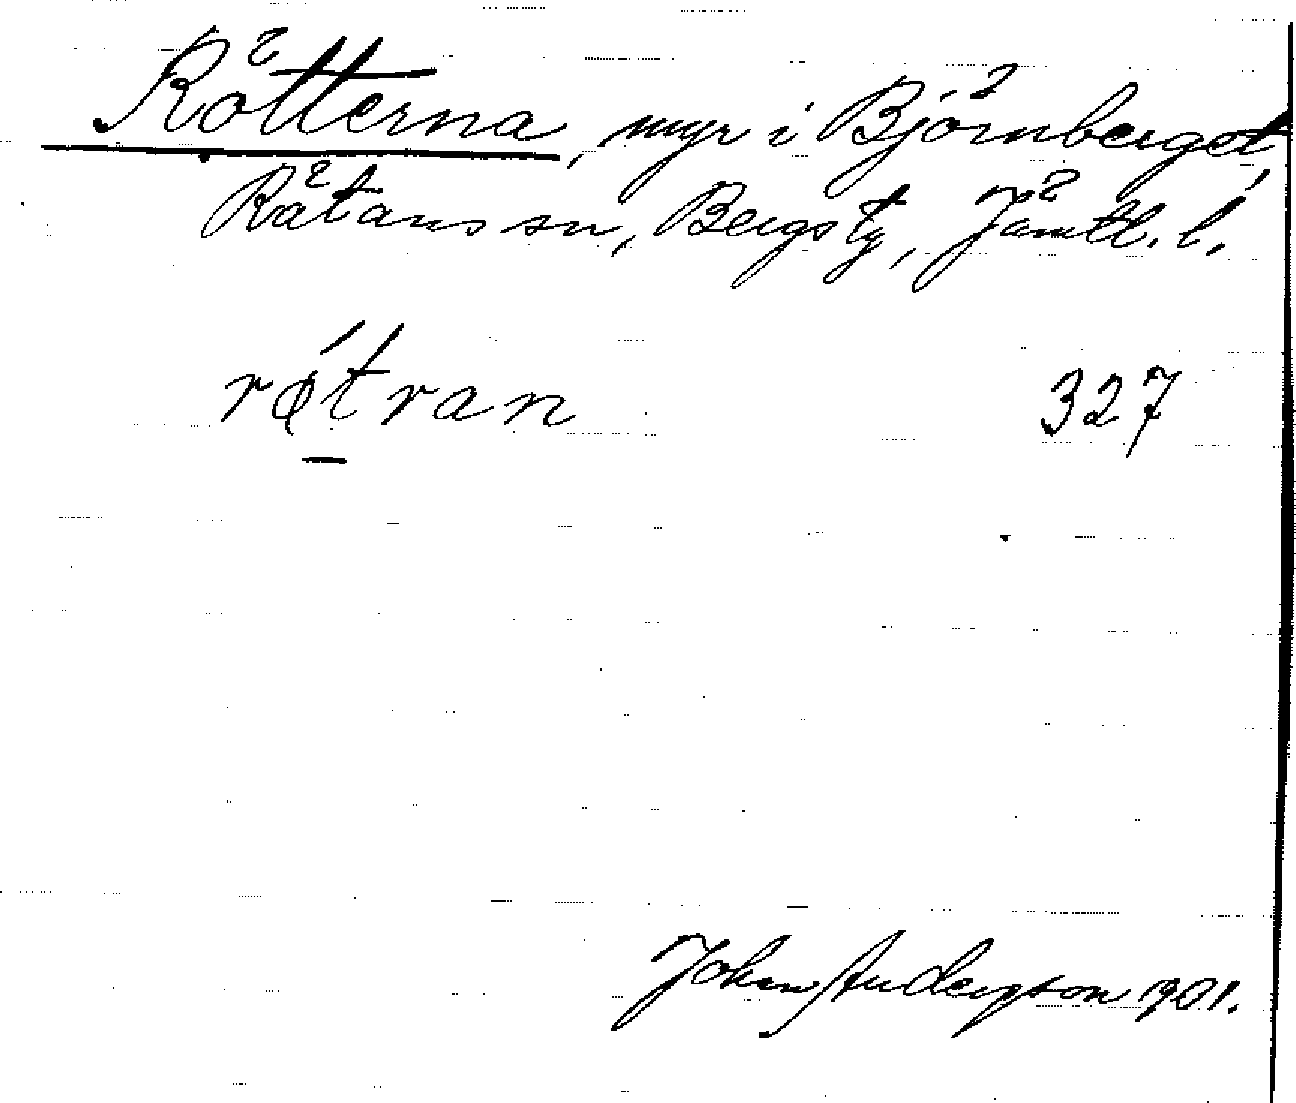 Rötterna, myr i Björnberget,
Rätans sn, Bergs tg, Jämtl. l.
røtran 327
Johan Anderson 1901.